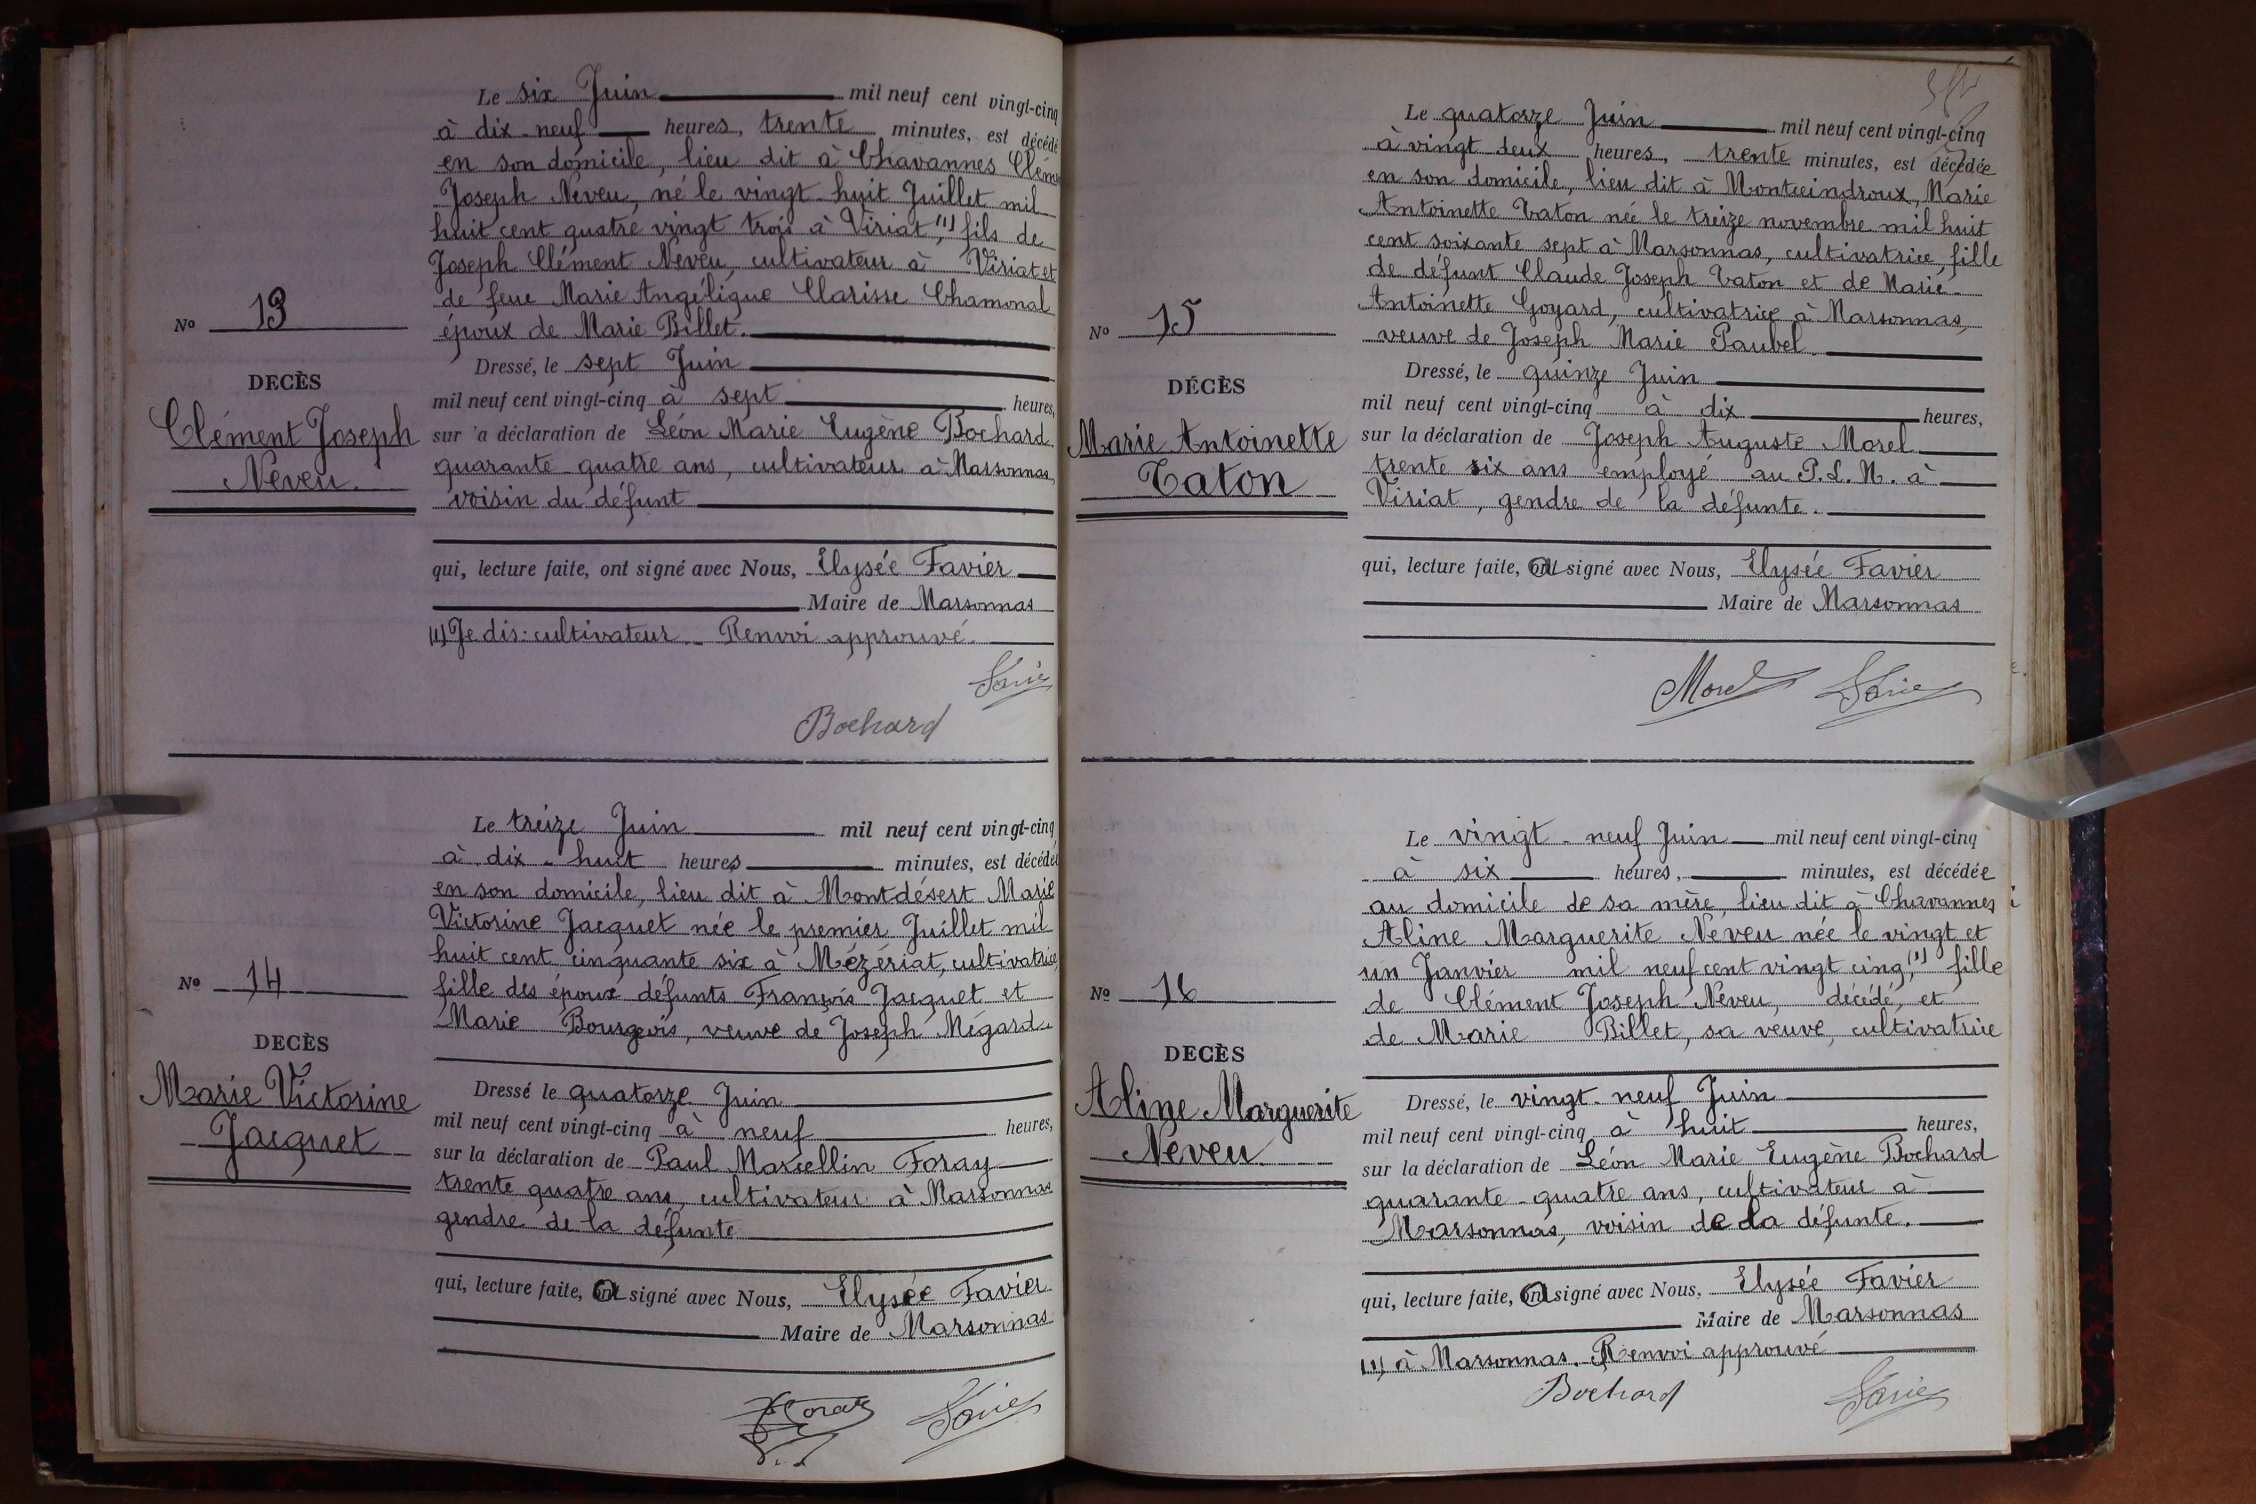 Le six Juin mil neuf cent vingt-cinq
à dix-neuf heures, trente minutes, est décédé
en son domicile, lieu dit à Chavannes Clém
Joseph Neveu, né le vingt-huit Juillet mil
huit cent quatre vingt trois à Viriat,(1) fils de
Joseph Clément Neveu, cultivateur à Viriat et
de feue Marie Angélique Clarisse Chamonal
époux de Marie Billet.
Nº 13
DECÈS
Clément Joseph
Neveu.
Dressé, le sept Juin
mil neuf cent vingt-cinq à sept heures,
sur 'a déclaration de Léon Marie Eugène Bochard
quarante-quatre ans, cultivateur à Marsonnas,
voisin du défunt
qui, lecture faite, ont signé avec Nous, Elysée Favier
Maire de Marsonnas
(1) Je dis: cultivateur. Renvoi approuvé.
Bochard
Le treize Juin mil neuf cent vingt-cinq
à dix-huit heures minutes, est décédée
en son domicile, lieu dit à Montdésert Marie
Victorine Jacquet née le premier Juillet mil
huit cent cinquante six à Mézériat, cultivatrice,
fille des époux défunts François Jacquet et
Marie Bourgeois, veuve de Joseph Mégard.
Nº 14
DECÈS
Marie Victorine
Jacquet
Dressé le quatorze Juin
mil neuf cent vingt-cinq à neuf heures,
sur la déclaration de Paul Marcellin Foray
trente quatre ans, cultivateur à Marsonnas
gendre de la défunte
qui, lecture faite, a signé avec Nous, Elysée Favier
Maire de Marsonnas
Le quatorze Juin mil neuf cent vingt-cinq
à vingt deux heures, trente minutes, est décédée
en son domicile, lieu dit à Montceindroux, Marie
Antoinette Taton née le treize novembre mil huit
cent soixante sept à Marsonnas, cultivatrice, fille
de défunt Claude Joseph Taton et de Marie
Antoinette Goyard, cultivatrice à Marsonnas,
veuve de Joseph Marie Paubel.
Nº 15
DÉCÈS
Marie Antoinette
Taton
Dressé, le quinze Juin
mil neuf cent vingt-cinq à dix heures,
sur la déclaration de Joseph Auguste Morel
trente six ans employé au P.L.M. à
Viriat, gendre de la défunte.
qui, lecture faite, a signé avec Nous, Elysée Favier
Maire de Marsonnas
Morel
Le vingt-neuf Juin mil neuf cent vingt-cinq
à six heures, minutes, est décédée
au domicile de sa mère, lieu dit à Chavannes
Aline Marguerite Neveu née le vingt et
un Janvier mil neuf cent vingt cinq,(1) fille
de Clément Joseph Neveu, décédé, et
de Marie Billet, sa veuve, cultivatrice
Nº 16
DECÈS
Aline Marguerite
Neveu
Dressé, le vingt-neuf Juin
mil neuf cent vingt-cinq à huit heures,
sur la déclaration de Léon Marie Eugène Bochard
quarante-quatre ans, cultivateur à
Marsonnas, voisin de la défunte.
qui, lecture faite, a signé avec Nous, Elysée Favier
Maire de Marsonnas
(1) à Marsonnas. Renvoi approuvé
Bochard